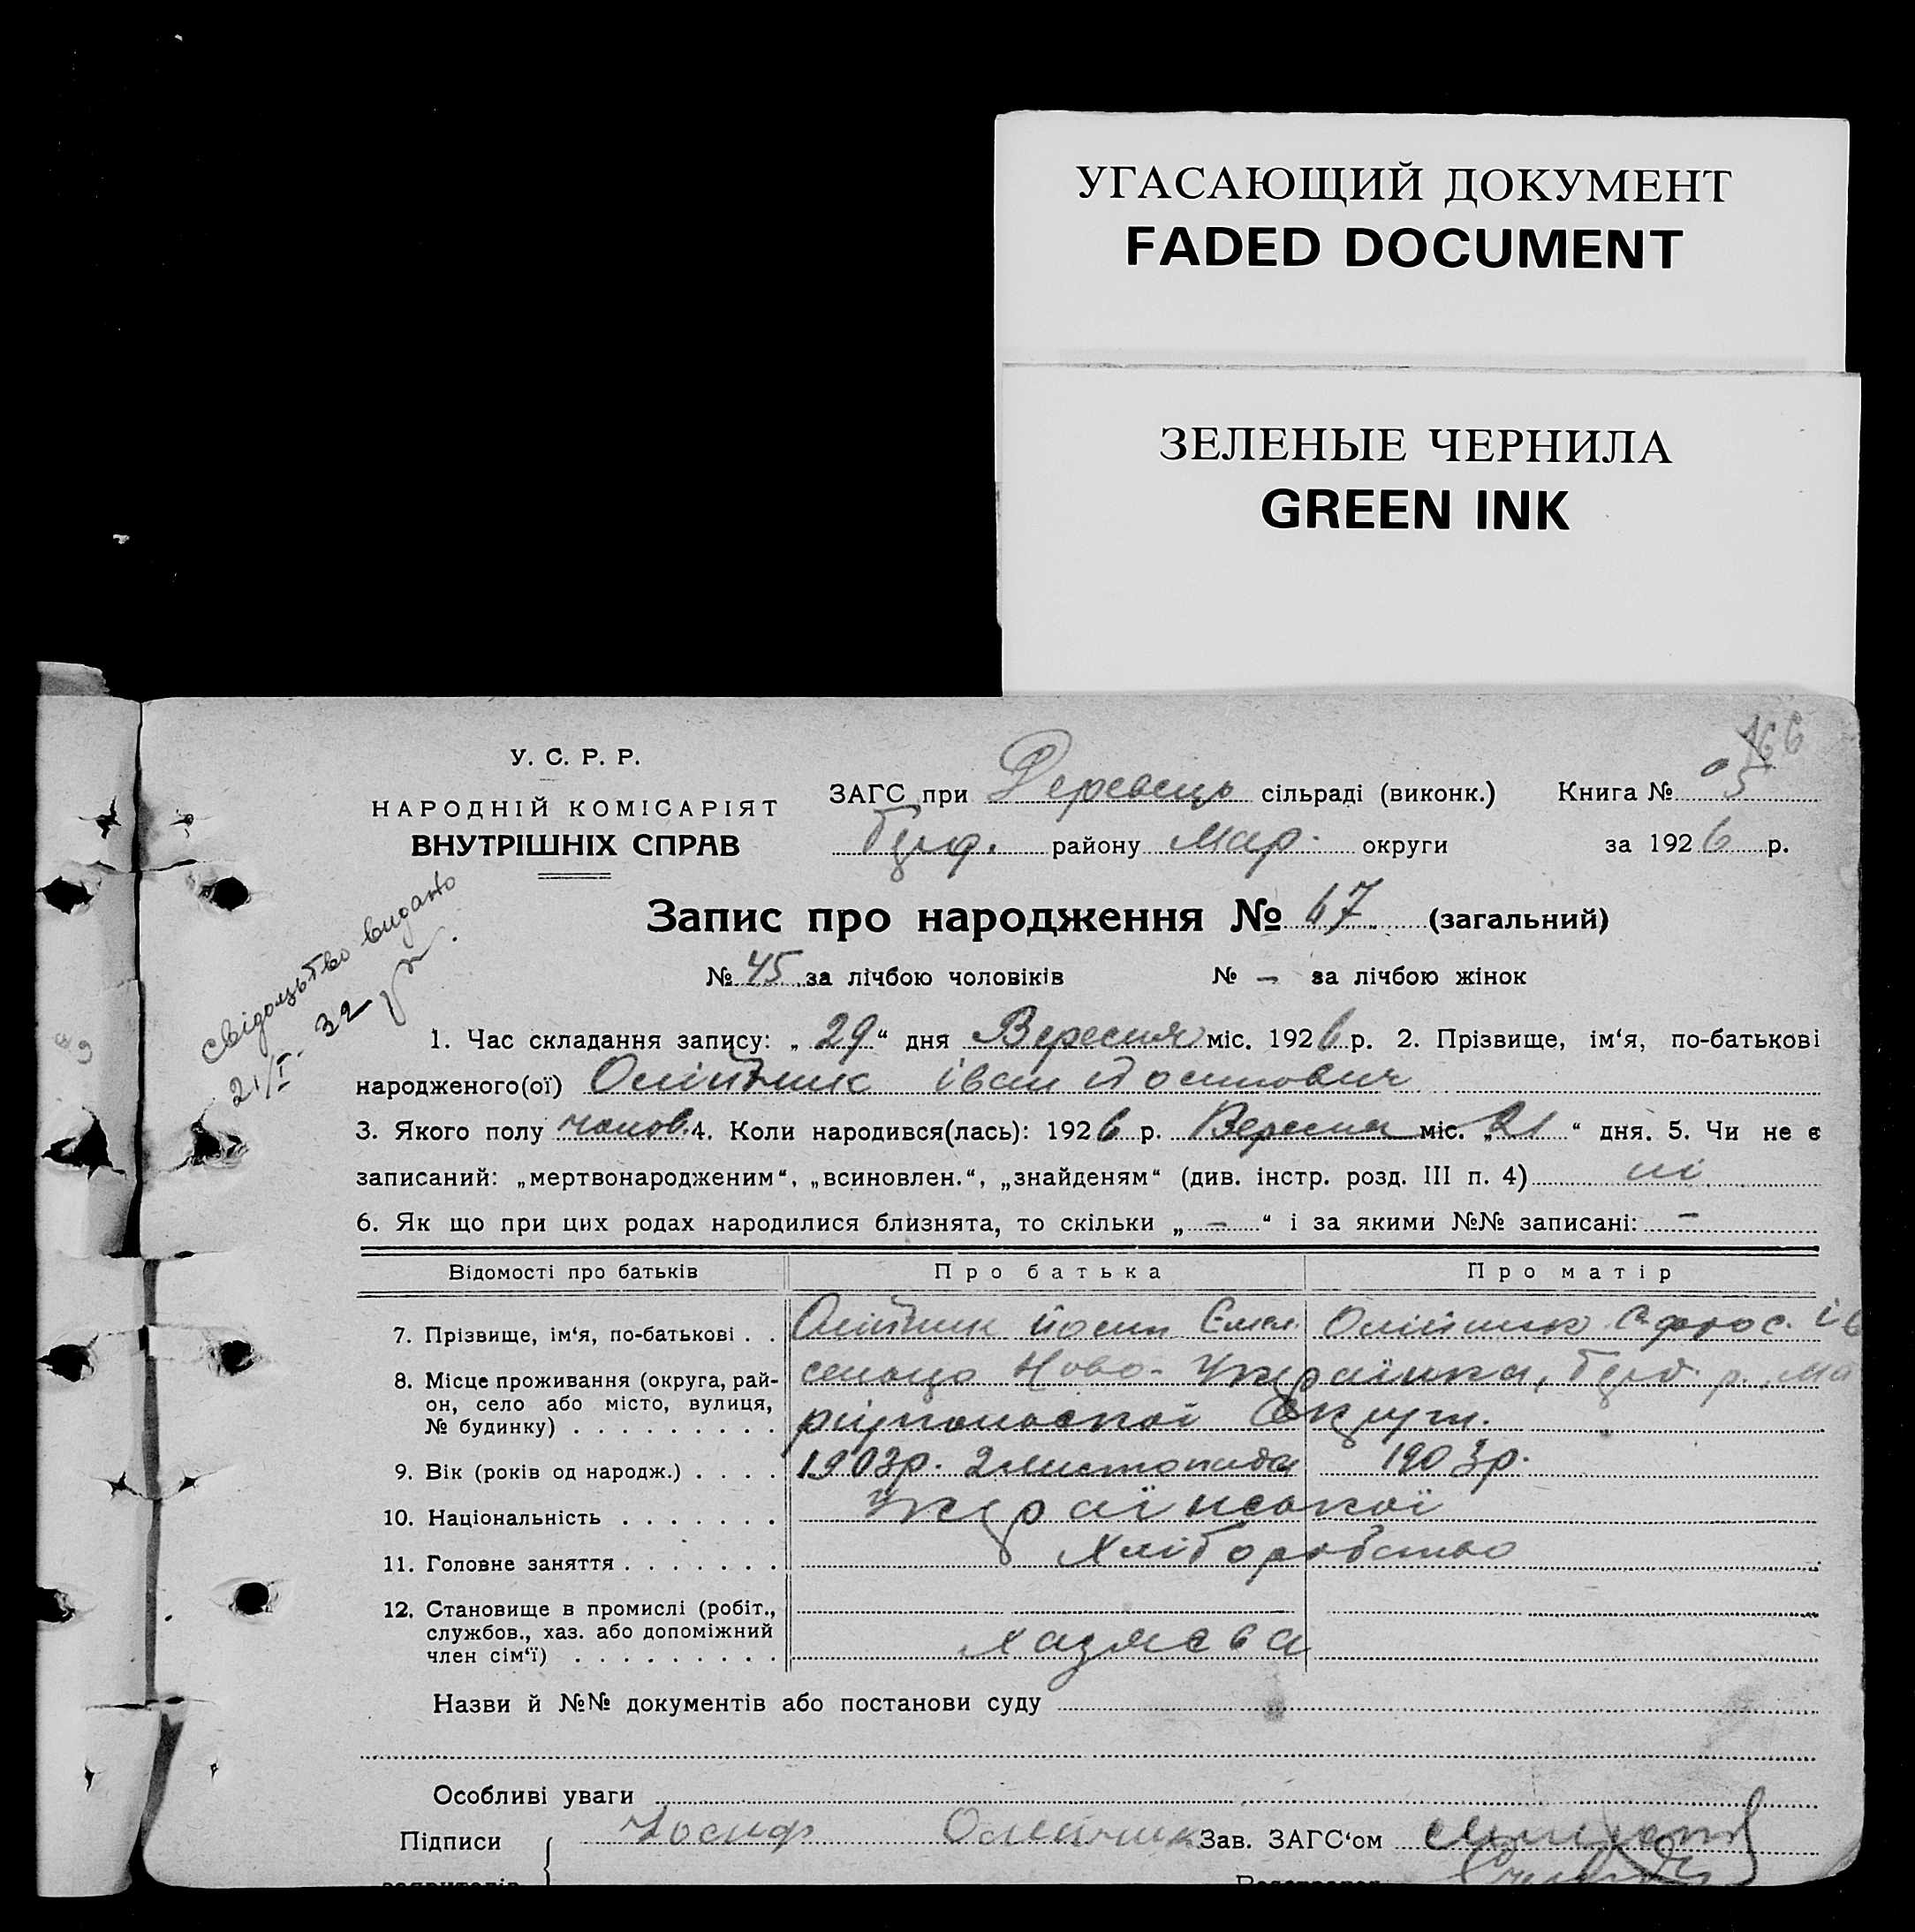 УГАСАЮЩИЙ ДОКУМЕНТ
FADED DOCUMENT
ЗЕЛЕНЫЕ ЧЕРНИЛА
GREEN INK
166
У. С. Р. Р.
НАРОДНІЙ КОМІСАРІЯТ
ВНУТРІШНІХ СПРАВ
ЗАГС при Деревець сільраді (виконк.) Книга № 5
району Мар. округи за 1926 р.
Свідоцьтво видано
21/I - 32
Запис про народження № 67 (загальний)
№ 45 за лічбою чоловіків № – за лічбою жінок
1. Час складання запису: „29“ дня Вересня міс. 1926 р. 2. Прізвище, ім‘я, по-батькові
народженого(ої) Олійник Іван Йосипович
3. Якого полу чолов. 4. Коли народився(лась): 1926 р. Вересня міс. „21“ дня. 5. Чи не є
записаний: „мертвонародженим“, „всиновлен.“, „знайденям“ (див. інстр. розд. III п. 4) ні
6. Як що при цих родах народилися близнята, то скільки „–“ і за якими №№ записані: –
Відомості про батьків Про батька Про матір
7. Прізвище, ім‘я, по-батькові . . Олійник Йосип Олійник
8. Місце проживання (округа, рай-
он, село або місто, вулиця,
№ будинку) . . . . . . . . .
сельцо Ново-Українка, р. Ма
ріупольскої Округи.
9. Вік (років од народж.) . . . . 1903р. 2 листопада 1903р.
10. Національність . . . . . . . Української
11. Головне заняття . . . . . . . Хліборобство
12. Становище в промислі (робіт.,
службов., хаз. або допоміжний
член сім‘ї) . . . . . . . . .
хазяєва
Назви й №№ документів або постанови суду
Особливі уваги
Підписи Йосиф Олійник Зав. ЗАГС‘ом
заявителів